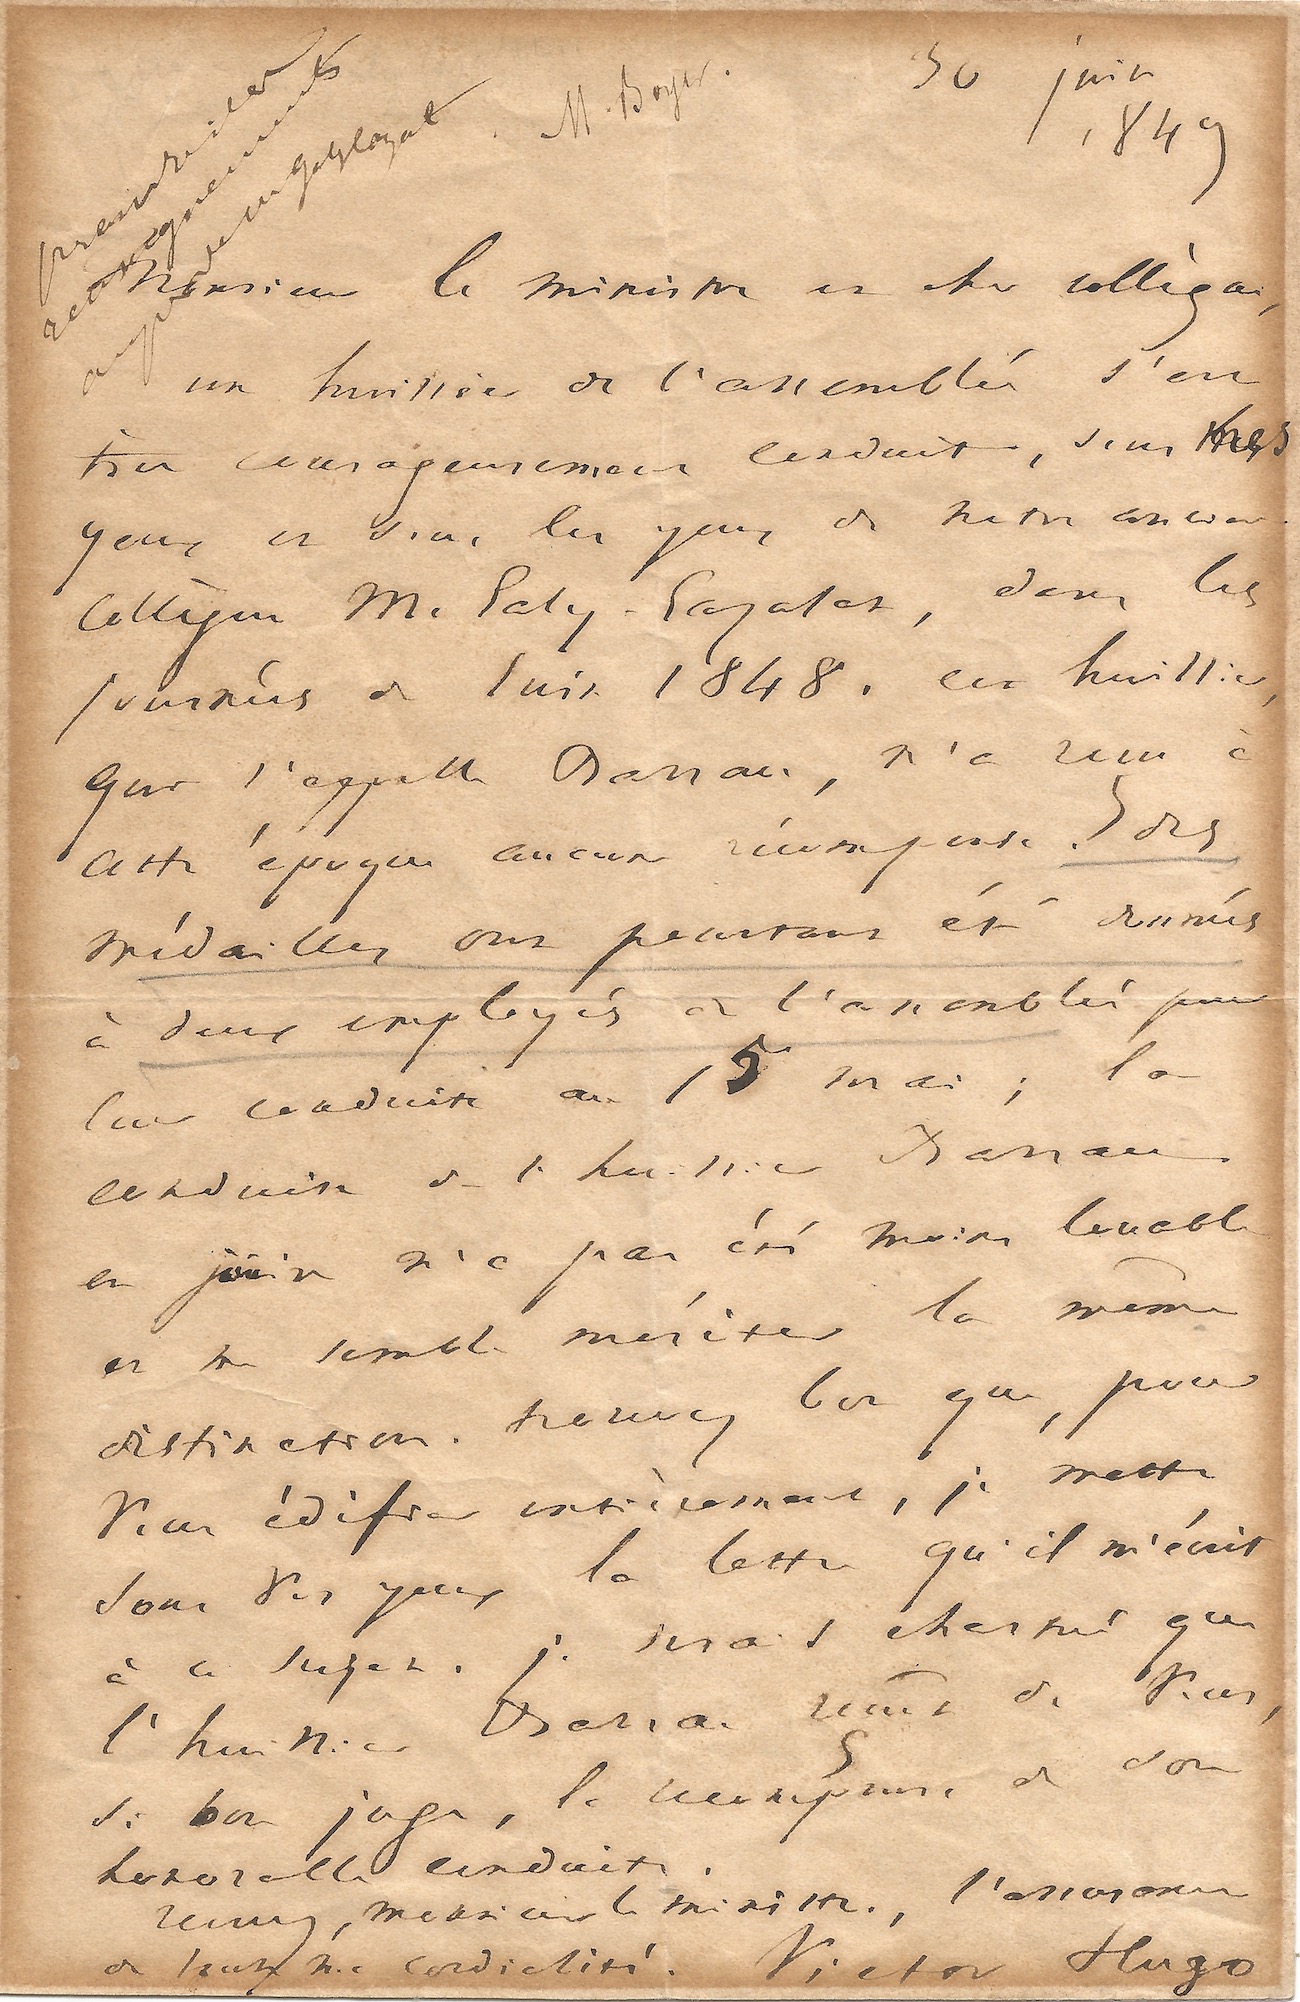 prendre les
renseignements
auprès de M. Galy Cazalat
M. Boyer.
30 juin
1849
Monsieur le ministre et cher collègue,
un huissier de l'assemblée s'est
très courageusement conduit, sous mes
yeux et sous les yeux de notre ancien
collègue M. Galy-Cazalat, dans les
journées de Juin 1848. cet huissier,
qui s'appelle Darrau, n'a reçu à
cette époque aucune récompense. des
médailles ont pourtant été données
à deux employés de l'assemblée pour
leur conduite au 15 mai ; la
conduite de l'huissier Darrau
en juin n'a pas été moins louable
et me semble mériter la même
distinction. trouvez bon que, pour
vous édifier entièrement, je mette
sous vos yeux la lettre qu'il m'écrit
à ce sujet. je serais charmé que
l'huissier Darrau reçût de vous,
si bon juge, la récompense de son
honorable conduite.
recevez, monsieur le ministre, l'assurance
de toute ma cordialité. Victor Hugo